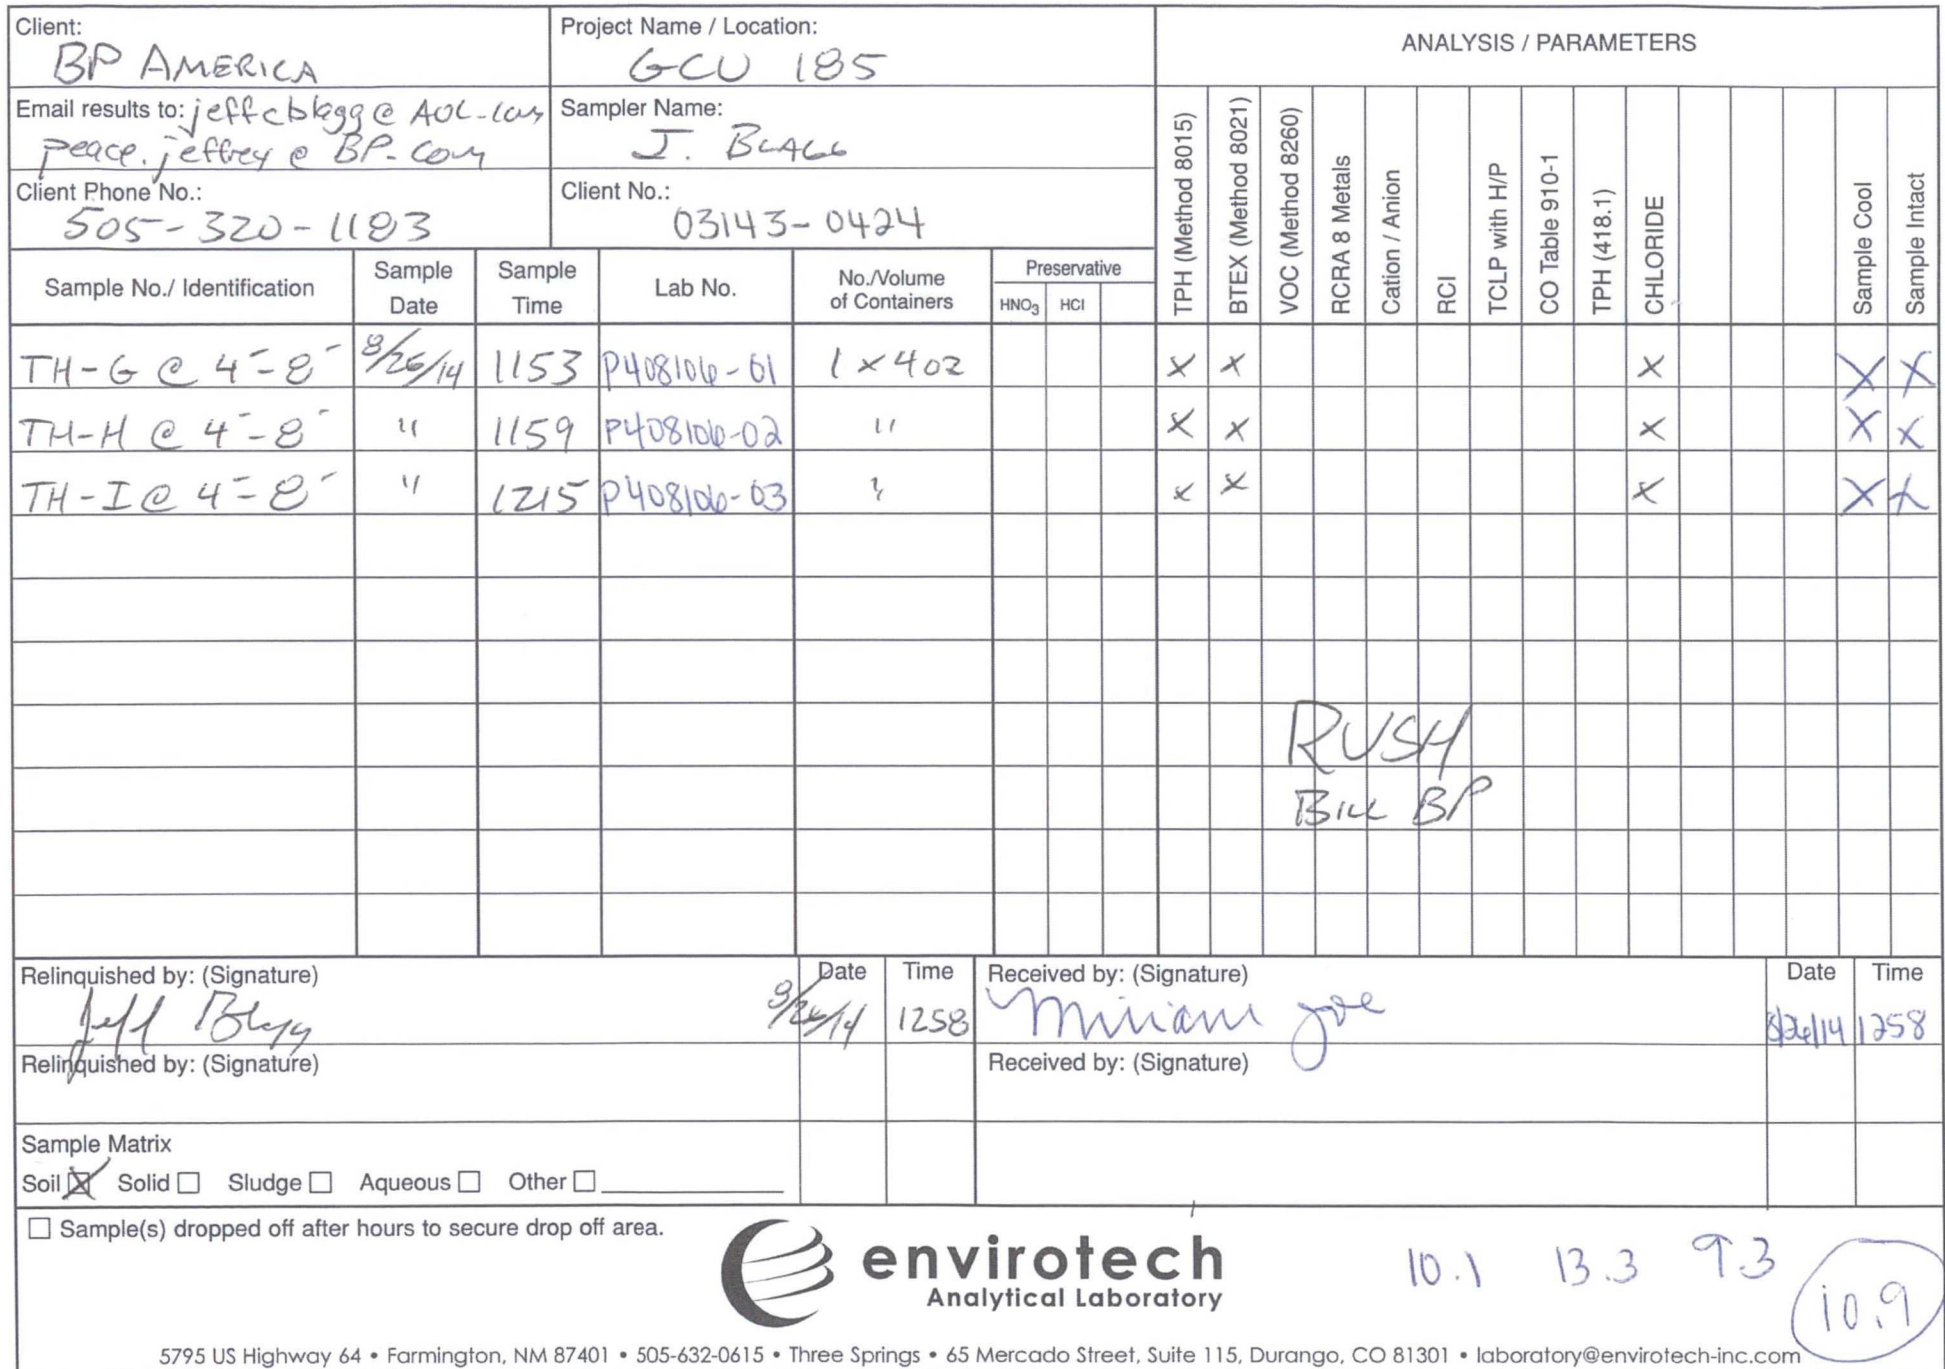 Client:
BP AMERICA
Project Name / Location:
GCU 185
ANALYSIS / PARAMETERS
Email results to: jeffcblagg@AOL.com
peace.jeffrey@BP.com
Sampler Name:
J. BLAGG
Client Phone No.:
505-320-1183
Client No.:
03143-0424
Sample No./ Identification
Sample Date
Sample Time
Lab No.
No./Volume of Containers
Preservative
HNO3 HCl
TPH (Method 8015)
BTEX (Method 8021)
VOC (Method 8260)
RCRA 8 Metals
Cation / Anion
RCI
TCLP with H/P
CO Table 910-1
TPH (418.1)
CHLORIDE
Sample Cool
Sample Intact
TH-G @ 4'-8' 8/26/14 1153 P408106-01 1 x 4oz X X X X X
TH-H @ 4'-8' " 1159 P408106-02 " X X X X X
TH-I @ 4'-8' " 1215 P408106-03 " X X X X X
RUSH
BILL BP
Relinquished by: (Signature) Date Time Received by: (Signature) Date Time
Jeff Blagg 8/26/14 1258 Miriam Joe 8/26/14 1258
Relinquished by: (Signature) Received by: (Signature)
Sample Matrix
Soil X Solid ☐ Sludge ☐ Aqueous ☐ Other ☐
☐ Sample(s) dropped off after hours to secure drop off area.
envirotech
Analytical Laboratory
10.1 13.3 9.3
10.9
5795 US Highway 64 • Farmington, NM 87401 • 505-632-0615 • Three Springs • 65 Mercado Street, Suite 115, Durango, CO 81301 • laboratory@envirotech-inc.com